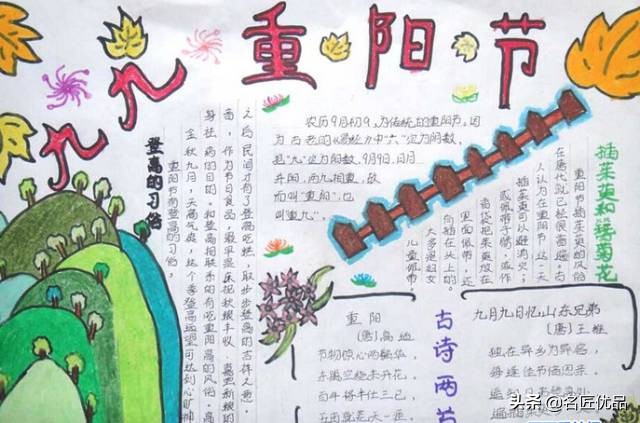 九九重阳节
农历9月初9,为传统的重阳节。因
为古老的《易经》中"六"定为阴数
把"九"定为阳数,9月9日,日月
并阳,两九相重,故
而叫"重阳",也
叫"重九"。
登高的习俗
重阳节有登高的习俗,
金秋九月,天高气爽,这个季节登高远望可达到心旷神
身祛病的目的。和登高相联系的有吃重阳高的风俗。高
面,作为节日食品,最早是庆祝秋粮丰收、喜尝新粮的
之后民间才有了登高吃糕,取步步登高的吉祥之意。
插茱萸和簪菊花
重阳节插茱萸的风俗
在唐代就已经很普遍。古
人认为在重阳节这一天
插茱萸可以避难消灾;
或佩带于臂,或作
香袋把茱萸放在
里面佩带,还
有插在头上的。
大多是妇女
儿童佩带,
古诗两首
重阳
(唐)高适
节物惊心两鬓华,
东篱空绕未开花。
百年将半仕三已,
五亩就荒天一涯。
九月九日忆山东兄弟
(唐)王维
独在异乡为异客,
每逢佳节倍思亲。
头条 @名匠优品